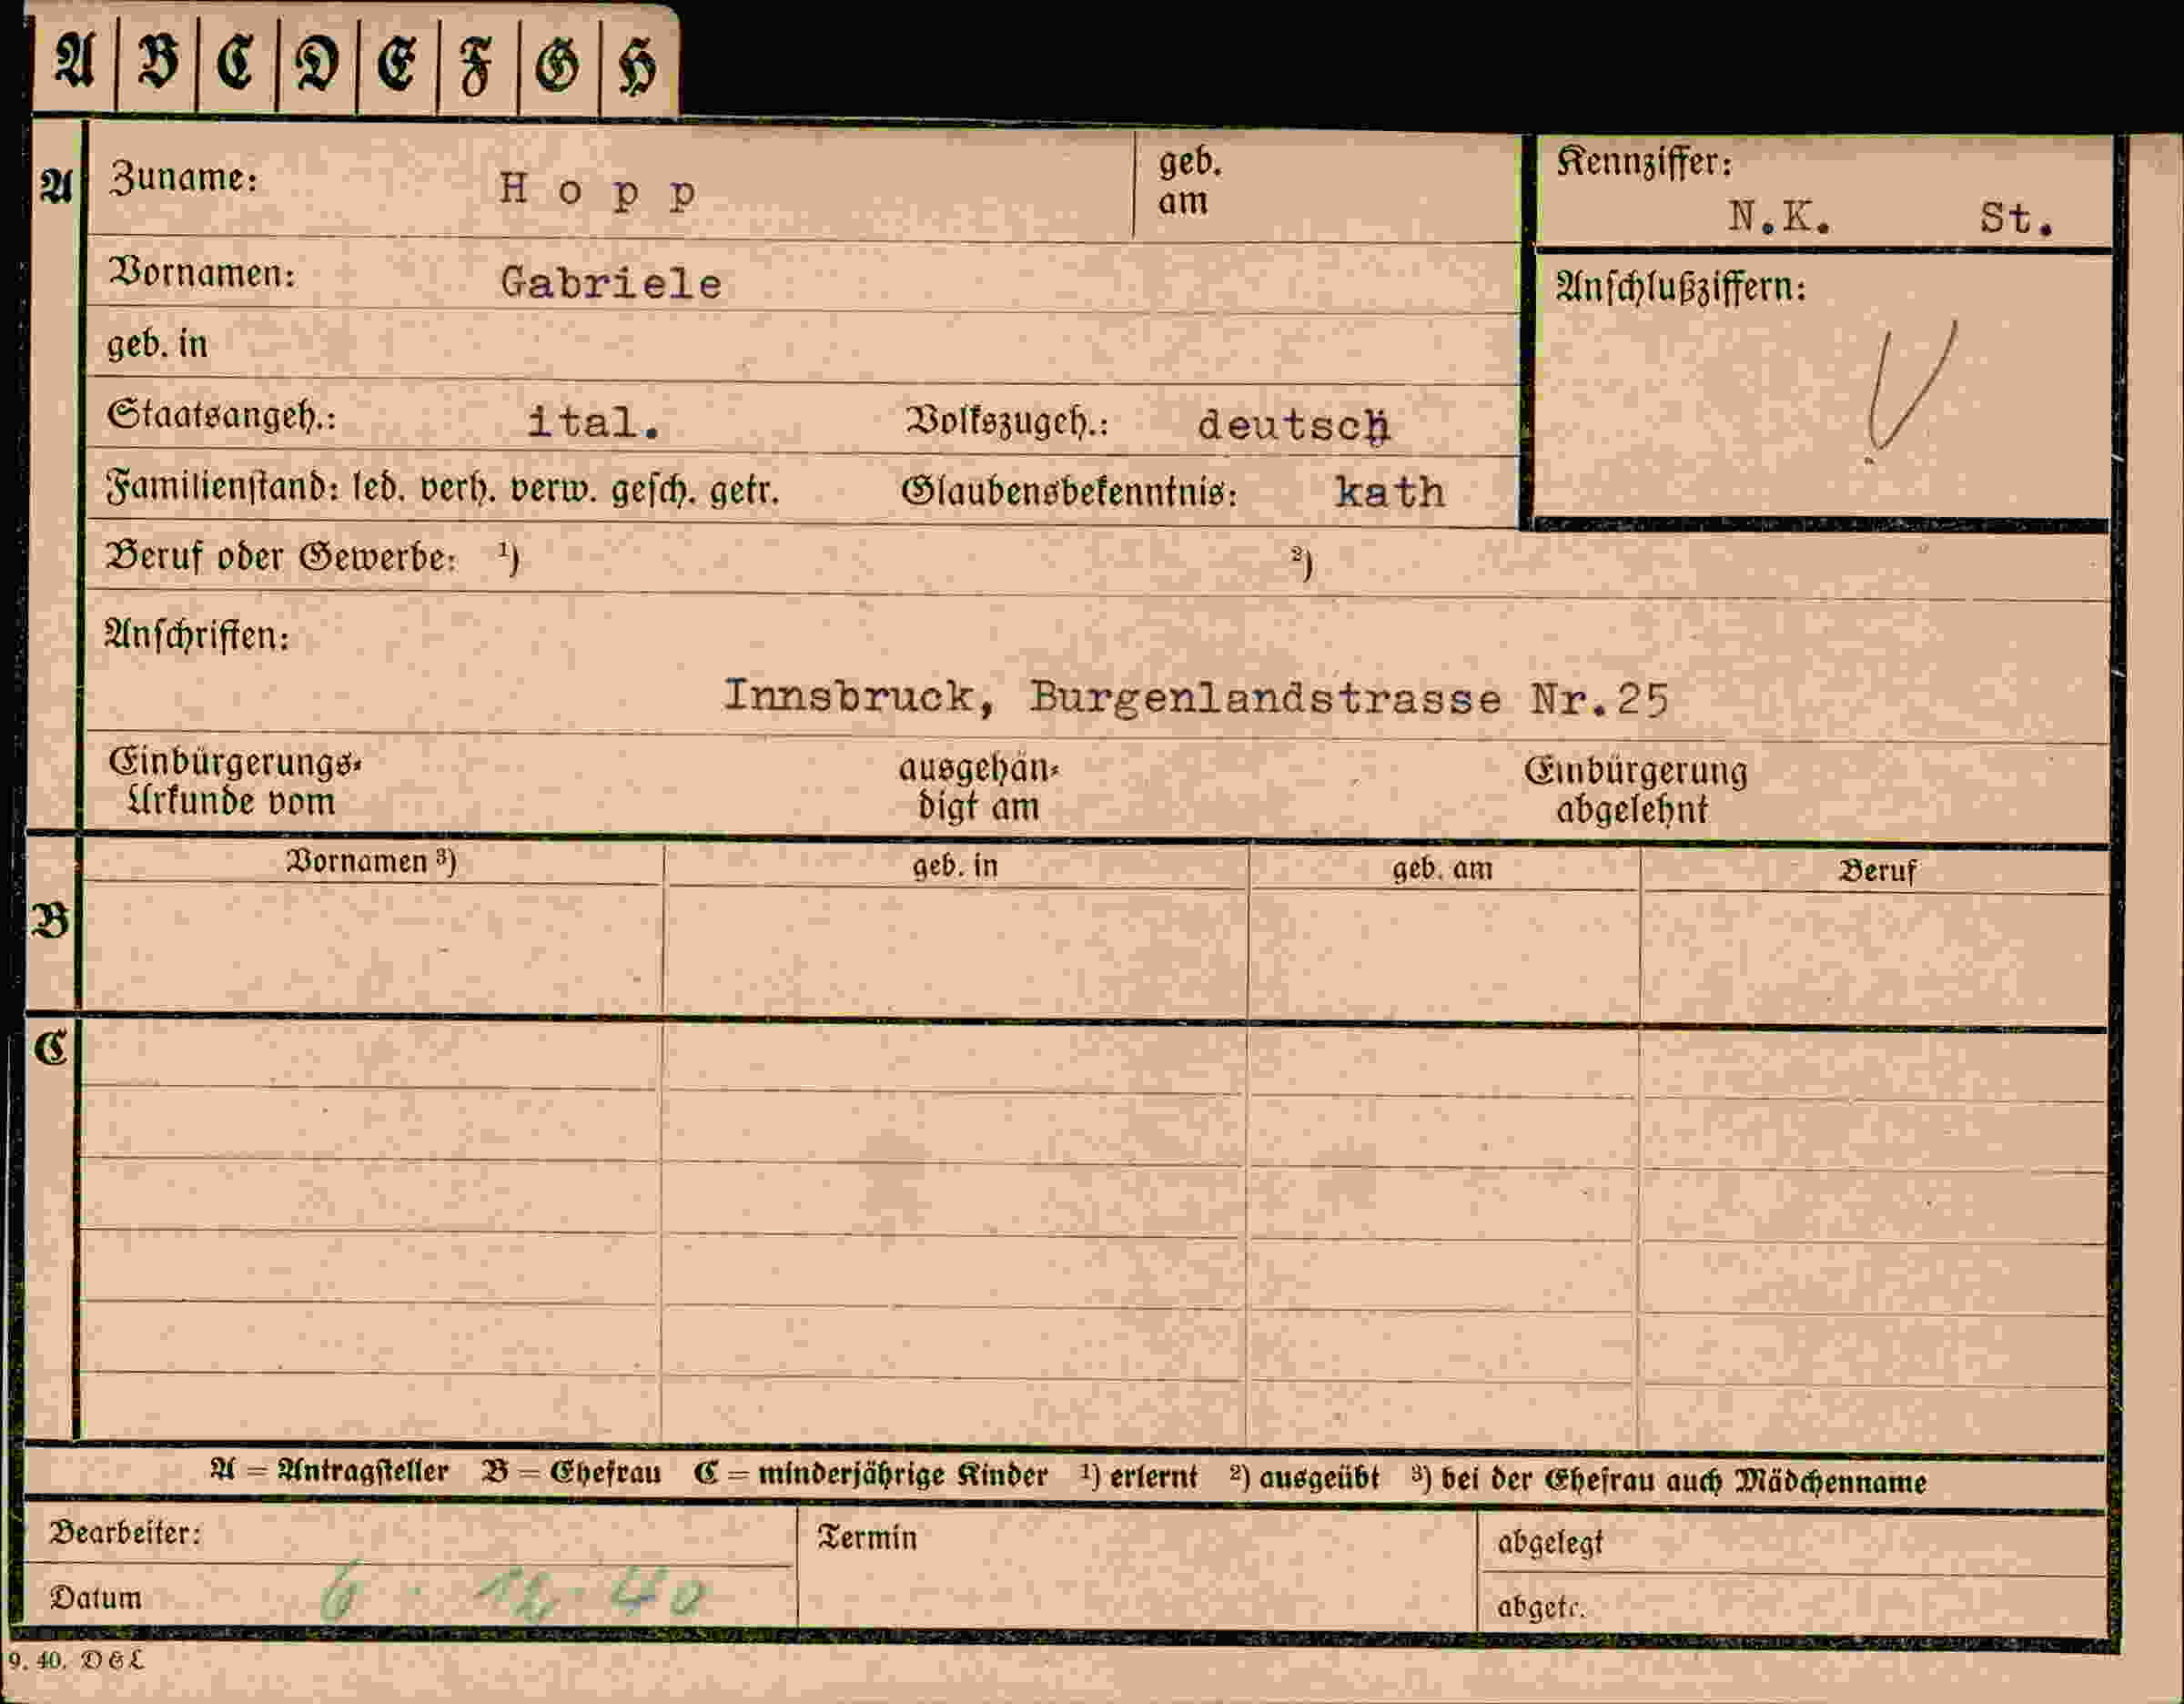 A B C D E F G H
A Zuname: Hopp geb. am
Kennziffer: N.K. St.
Vornamen: Gabriele
Anschlußziffern:
geb. in
Staatsangeh.: ital. Volkszugeh.: deutsch
Familienstand: led. verh. verw. gesch. getr. Glaubensbekenntnis: kath
Beruf oder Gewerbe: ¹) ²)
Anschriften:
Innsbruck, Burgenlandstrasse Nr.25
Einbürgerungs- ausgehän- Einbürgerung
Urkunde vom digt am abgelehnt
Vornamen ³) geb. in geb. am Beruf
B
C
A = Antragsteller B = Ehefrau C = minderjährige Kinder ¹) erlernt ²) ausgeübt ³) bei der Ehefrau auch Mädchenname
Bearbeiter: Termin abgelegt
Datum 6. 12. 40 abgetr.
9. 40. D&L